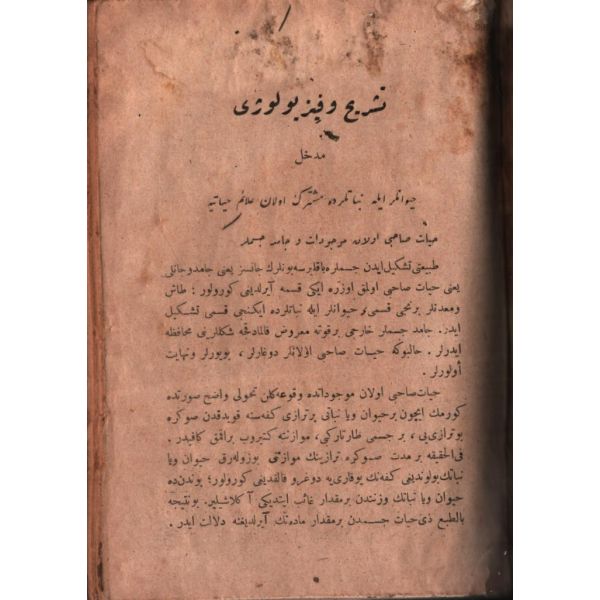 تشریح و فیزیولوژی
مدخل
حیوانلر ایله نباتلرده مشترك اولان علائم حیاتیه
حیات صاحبی اولان موجودات و جامد جسملر
طبیعتی تشكیل ایدن جسملره باقلیرسه بونلرك جانسز یعنی جامد و جانلی
یعنی حیات صاحبی اولمق اوزره ایكی قسمه آیرلدیغی كورولور : طاش
ومعدنلر برنجی قسمی، حیوانلر ایله نباتلرده ایكنجی قسمی تشكیل
ایدر. جامد جسملر خارجی برقوته معروض قالمادقجه شكللرینی محافظه
ایدرلر . حالبوكه حیات صاحبی اولانلر دوغارلر ، بویورلر ونهایت
أولورلر .
حیات صاحبی اولان موجوداتده وقوعه كلن تحولی واضح صورتده
كورمك ایچون برحیوان ویا نباتی برترازی كفه سنه قویدقدن صوكره
بوترازی یی ، بر جسمی طارتاركبی ، موازنته كتیروب براقمق كافیدر .
فی الحقیقه بر مدت صوكره ترازینك موازنتی بوزوله رق حیوان ویا
نباتك بولوندیغی كفه نك یوقاری یه دوغرو قالقدیغی كورولور؛ بوندن ده
حیوان ویا نباتك وزنندن برمقدار غائب ایتدیكی آكلاشیلیر. بونتیجه
بالطبع ذی حیات جسمدن برمقدار ماده نك آیرلدیغنه دلالت ایدر .